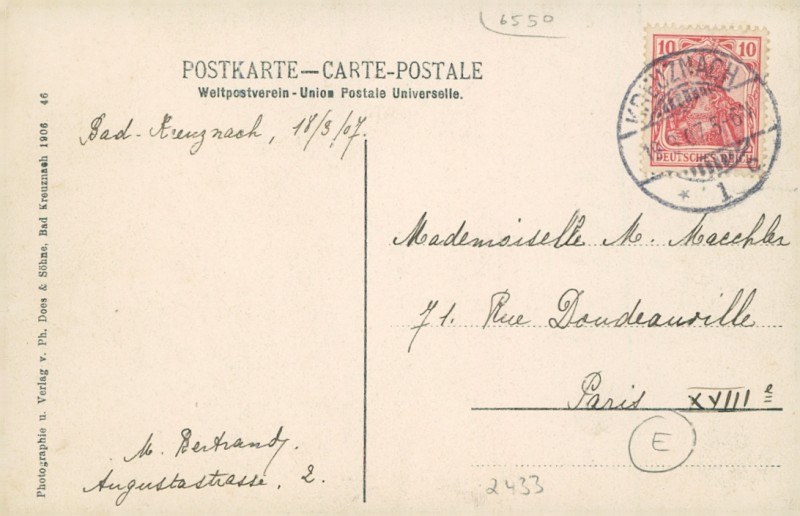 6550
POSTKARTE—CARTE-POSTALE
Weltpostverein - Union Postale Universelle.
10 10
DEUTSCHES REICH
KREUZNACH
* 1 c
Bad-Kreuznach, 18/3/07.
Mademoiselle M. Maechler
71. Rue Doudeauville
Paris XVIII e
E
2433
M. Bertrand.
Augustastrasse, 2.
Photographie u. Verlag v. Ph. Does & Söhne, Bad Kreuznach 1906 46